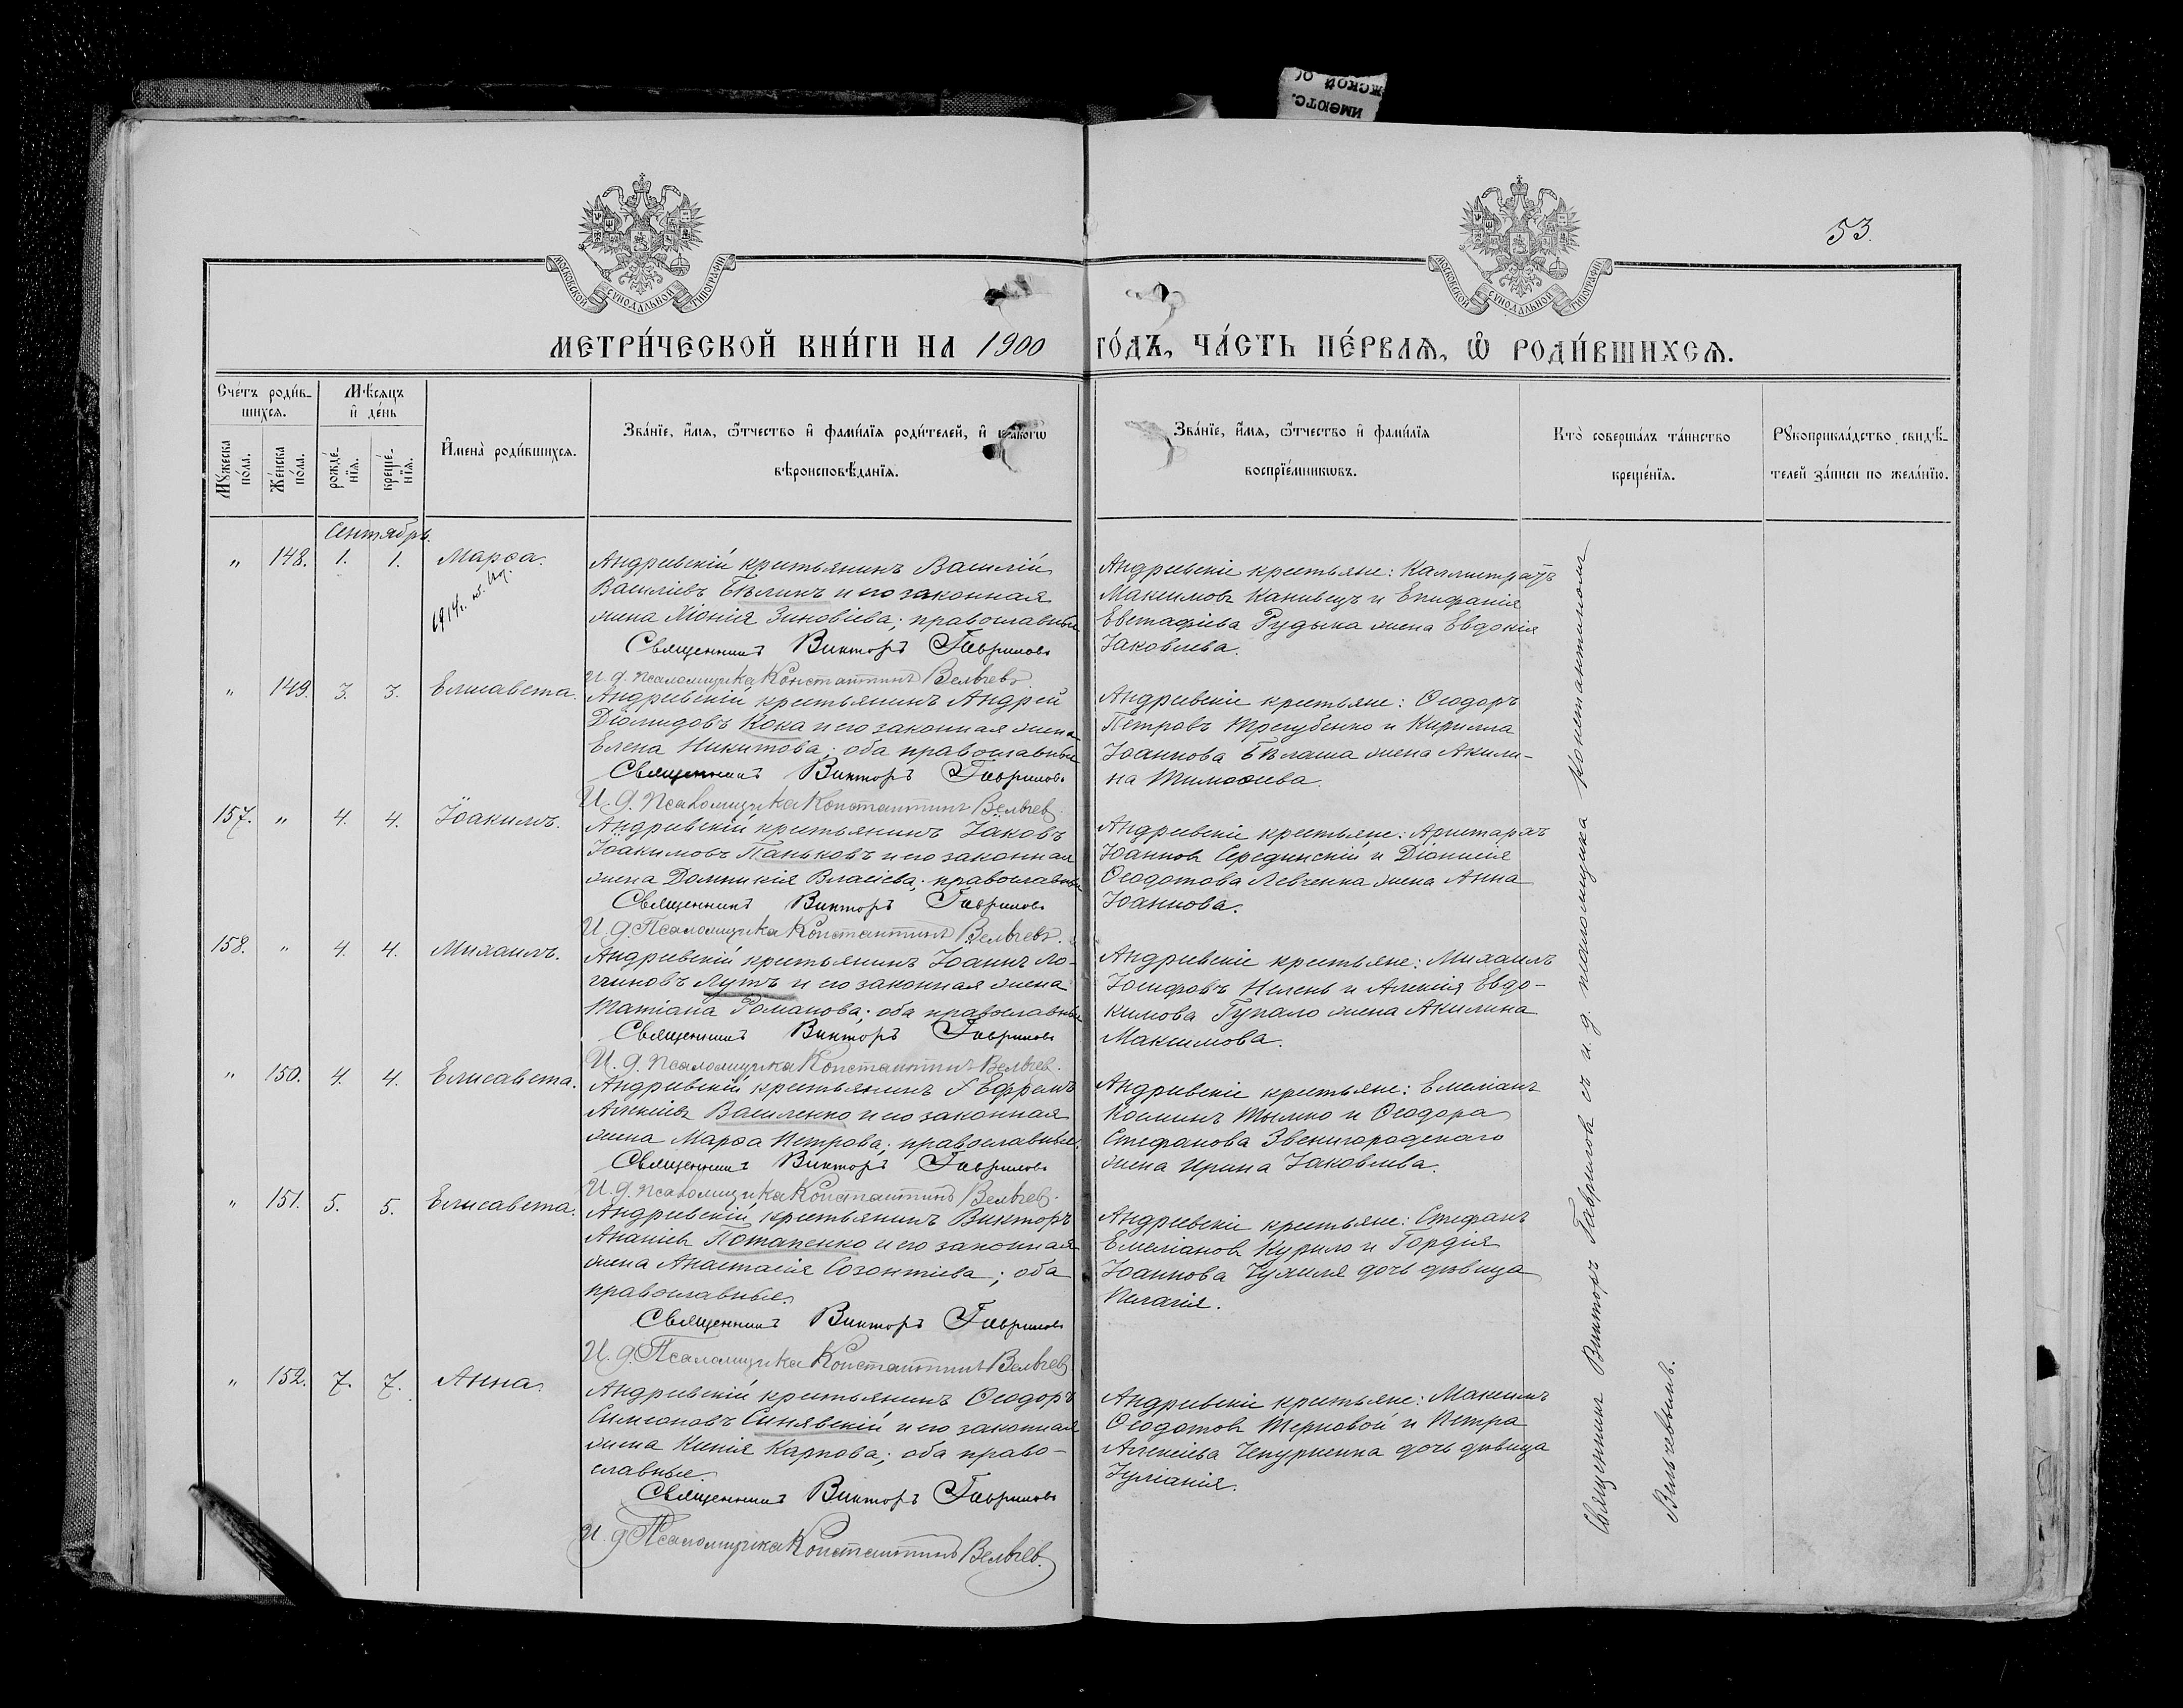 53.
МОСКОВСКОЙ СѴНОДАЛЬНОЙ ТИПОГРАФІИ
МОСКОВСКОЙ СѴНОДАЛЬНОЙ ТИПОГРАФІИ
МЕТРИ́ЧЕСКОЙ КНИ́ГИ НА 1900 ГО́ДЪ, ЧА́СТЬ ПЕ́РВАЯ, Ѡ҆ РОДИ́ВШИХСЯ.
Сче́тъ роди́в-
шихся.
Мꙋжеска по́ла.
Же́нска по́ла.
Мѣ́сяцъ и҆ де́нь
рожде́-
нїя.
креще́-
нїя.
И҆мена̀ роди́вшихся.
Зва́нїе, и҆́мя, ѻ҆́тчество и҆ фами́лїя роди́телей, и҆
вѣроисповѣ́данїя.
Зва́нїе, и҆́мя, ѻ҆́тчество и҆ фами́лїя
воспрїе́мникѡвъ.
Кто̀ соверша́лъ та́инство
креще́нїя.
Рꙋкоприкла́дство свидѣ́-
телей за́писи по жела́нїю.
Сентябрь.
" 148. 1. 1. Марѳа.
Андреевскій крестьянинъ Василій
Василіевъ Бѣликъ и его законная
жена Хіонія Зиновіева; православные
Священникъ Викторъ Гавриловъ
И. д. псаломщика Константинъ Вельчев
Андреевскіе крестьяне: Каллистратъ
Максимовъ Канивецъ и Епифанія
Евстафіева Рудыка жена Евдокія
Іаковлева.
" 149. 3. 3. Елисавета.
Андреевскій крестьянинъ Андрей
Діомидовъ Кока и его законная жена
Елена Никитова; оба православные
Священникъ Викторъ Гавриловъ
И. д. псаломщика Константинъ Вельчев.
Андреевскіе крестьяне: Ѳеодоръ
Петровъ Трегубенко и Кирилла
Іоаннова Бѣлаша жена Акили-
на Тимоѳеева.
157. " 4. 4. Іоакимъ.
Андреевскій крестьянинъ Іаковъ
Іоакимовъ Паньковъ и его законная
жена Домникія Власіева; православные
Священникъ Викторъ Гавриловъ
И. д. Псаломщика Константинъ Вельчевъ.
Андреевскіе крестьяне: Аристархъ
Іоанновъ Серединскій и Діонисія
Ѳеодотова Левченка жена Анна
Іоаннова.
158. " 4. 4. Михаилъ.
Андреевскій крестьянинъ Іоаннъ Ло-
гиновъ Лутъ и его законная жена
Татіана Романова; оба православные
Священникъ Викторъ Гавриловъ
И. д. псаломщика Константинъ Вельчев.
Андреевскіе крестьяне: Михаилъ
Іосифовъ Нелень и Алексія Евдо-
кимова Гупало жена Акилина
Максимова.
" 150. 4. 4. Елисавета.
Андреевскій крестьянинъ Ефремъ
Алексіевъ Василенко и его законная
жена Марѳа Петрова; православные.
Священникъ Викторъ Гавриловъ
И. д. псаломщика Константинъ Вельчев.
Андреевскіе крестьяне: Емеліанъ
Косминъ Тымко и Ѳеодора
Стефанова Звенигородскаго
жена Ирина Іаковлева.
" 151. 5. 5. Елисавета.
Андреевскій крестьянинъ Викторъ
Ананіевъ Потапенко и его законная
жена Анастасія Созонтіева; оба
православные.
Священникъ Викторъ Гавриловъ
И. д. Псаломщика Константинъ Вельчев
Андреевскіе крестьяне: Стефанъ
Емеліановъ Курило и Гордія
Іоаннова Чухиля дочь дѣвица
Пелагія.
" 152. 7. 7. Анна.
Андреевскій крестьянинъ Ѳеодоръ
Симеоновъ Синявскій и его законная
жена Ксенія Карпова; оба право-
славные.
Священникъ Викторъ Гавриловъ
И. д. Псаломщика Константинъ Вельчев.
Андреевскіе крестьяне: Максимъ
Ѳеодотовъ Терновой и Петра
Алексіева Чепурненка дочь дѣвица
Іуліанія.
Священникъ Викторъ Гавриловъ съ и. д. псаломщика Константиномъ
Вельчевымъ.